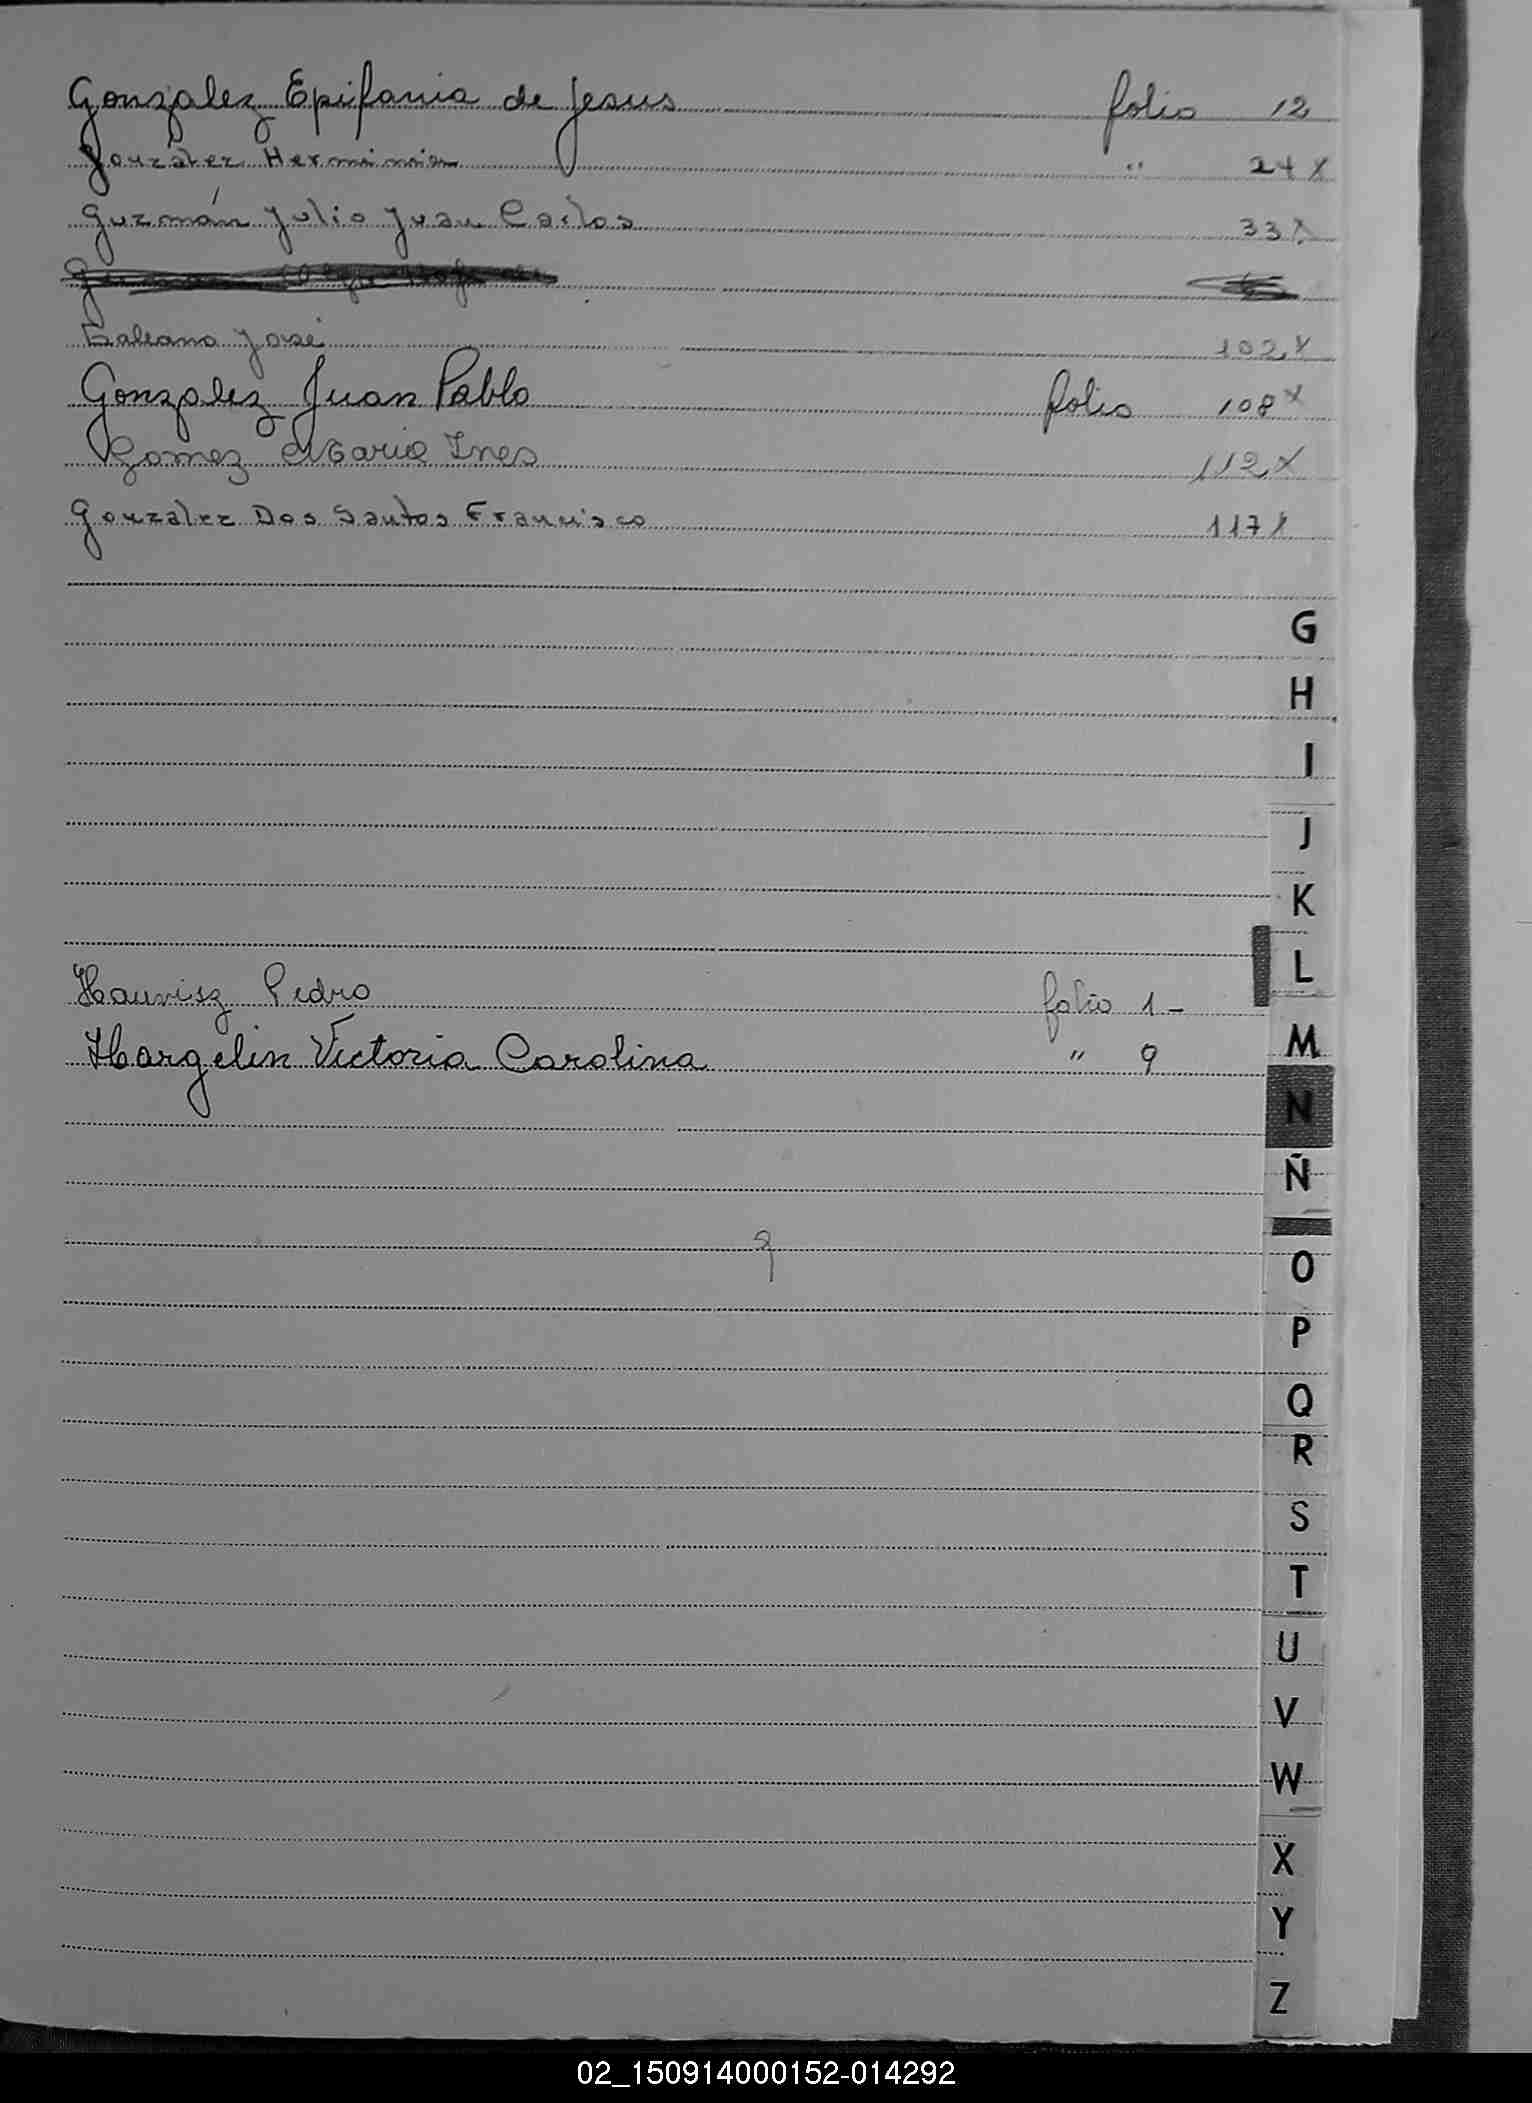 Gonzalez Epifania de Jesus folio 12
González Herminia " 24 X
Guzmán Julio Juan Carlos 33 X
Galeano José 102 X
Gonzalez Juan Pablo folio 108 X
Gomez Maria Ines 112 X
Gonzalez Dos Santos Francisco 117 X
G
H
I
J
K
L
Haurisz Pedro folio 1 -
Hargelin Victoria Carolina " 9
M
N
Ñ
9
O
P
Q
R
S
T
U
V
W
X
Y
Z
02_150914000152-014292